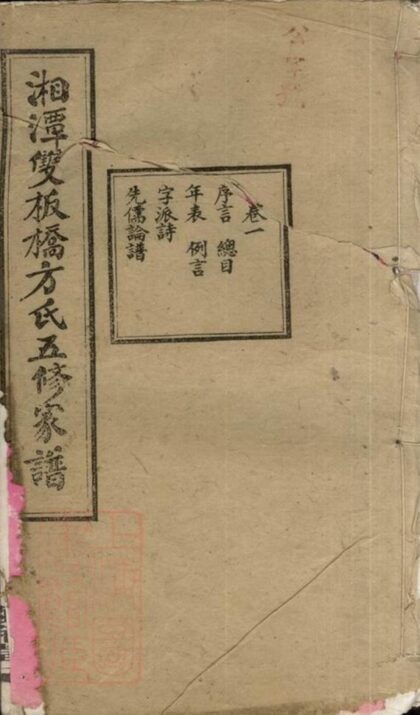 湘潭雙板橋方氏五修家譜
卷一
序言 總目
年表 例言
字派詩
先儒論譜